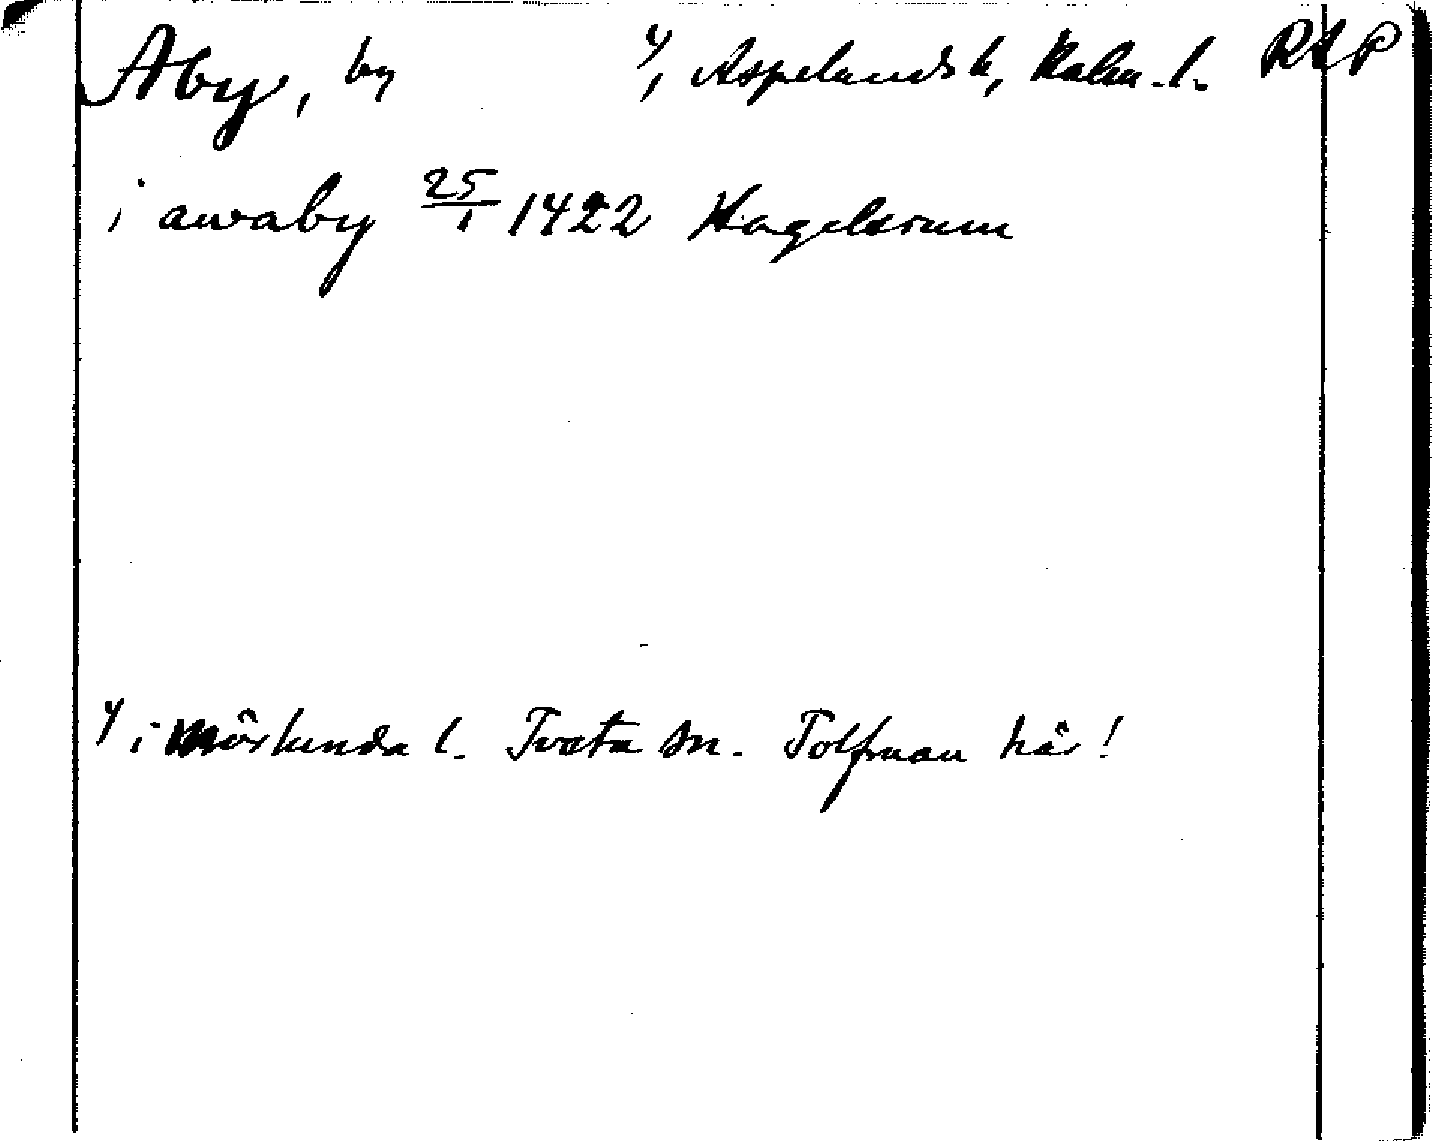 Åby, by 1), Aspelands h, Kalm. l. RAP
i awaby 25/1 1422 Hagelsrum
1) i Mörlunda l. Tveta sn. Tolfman här!